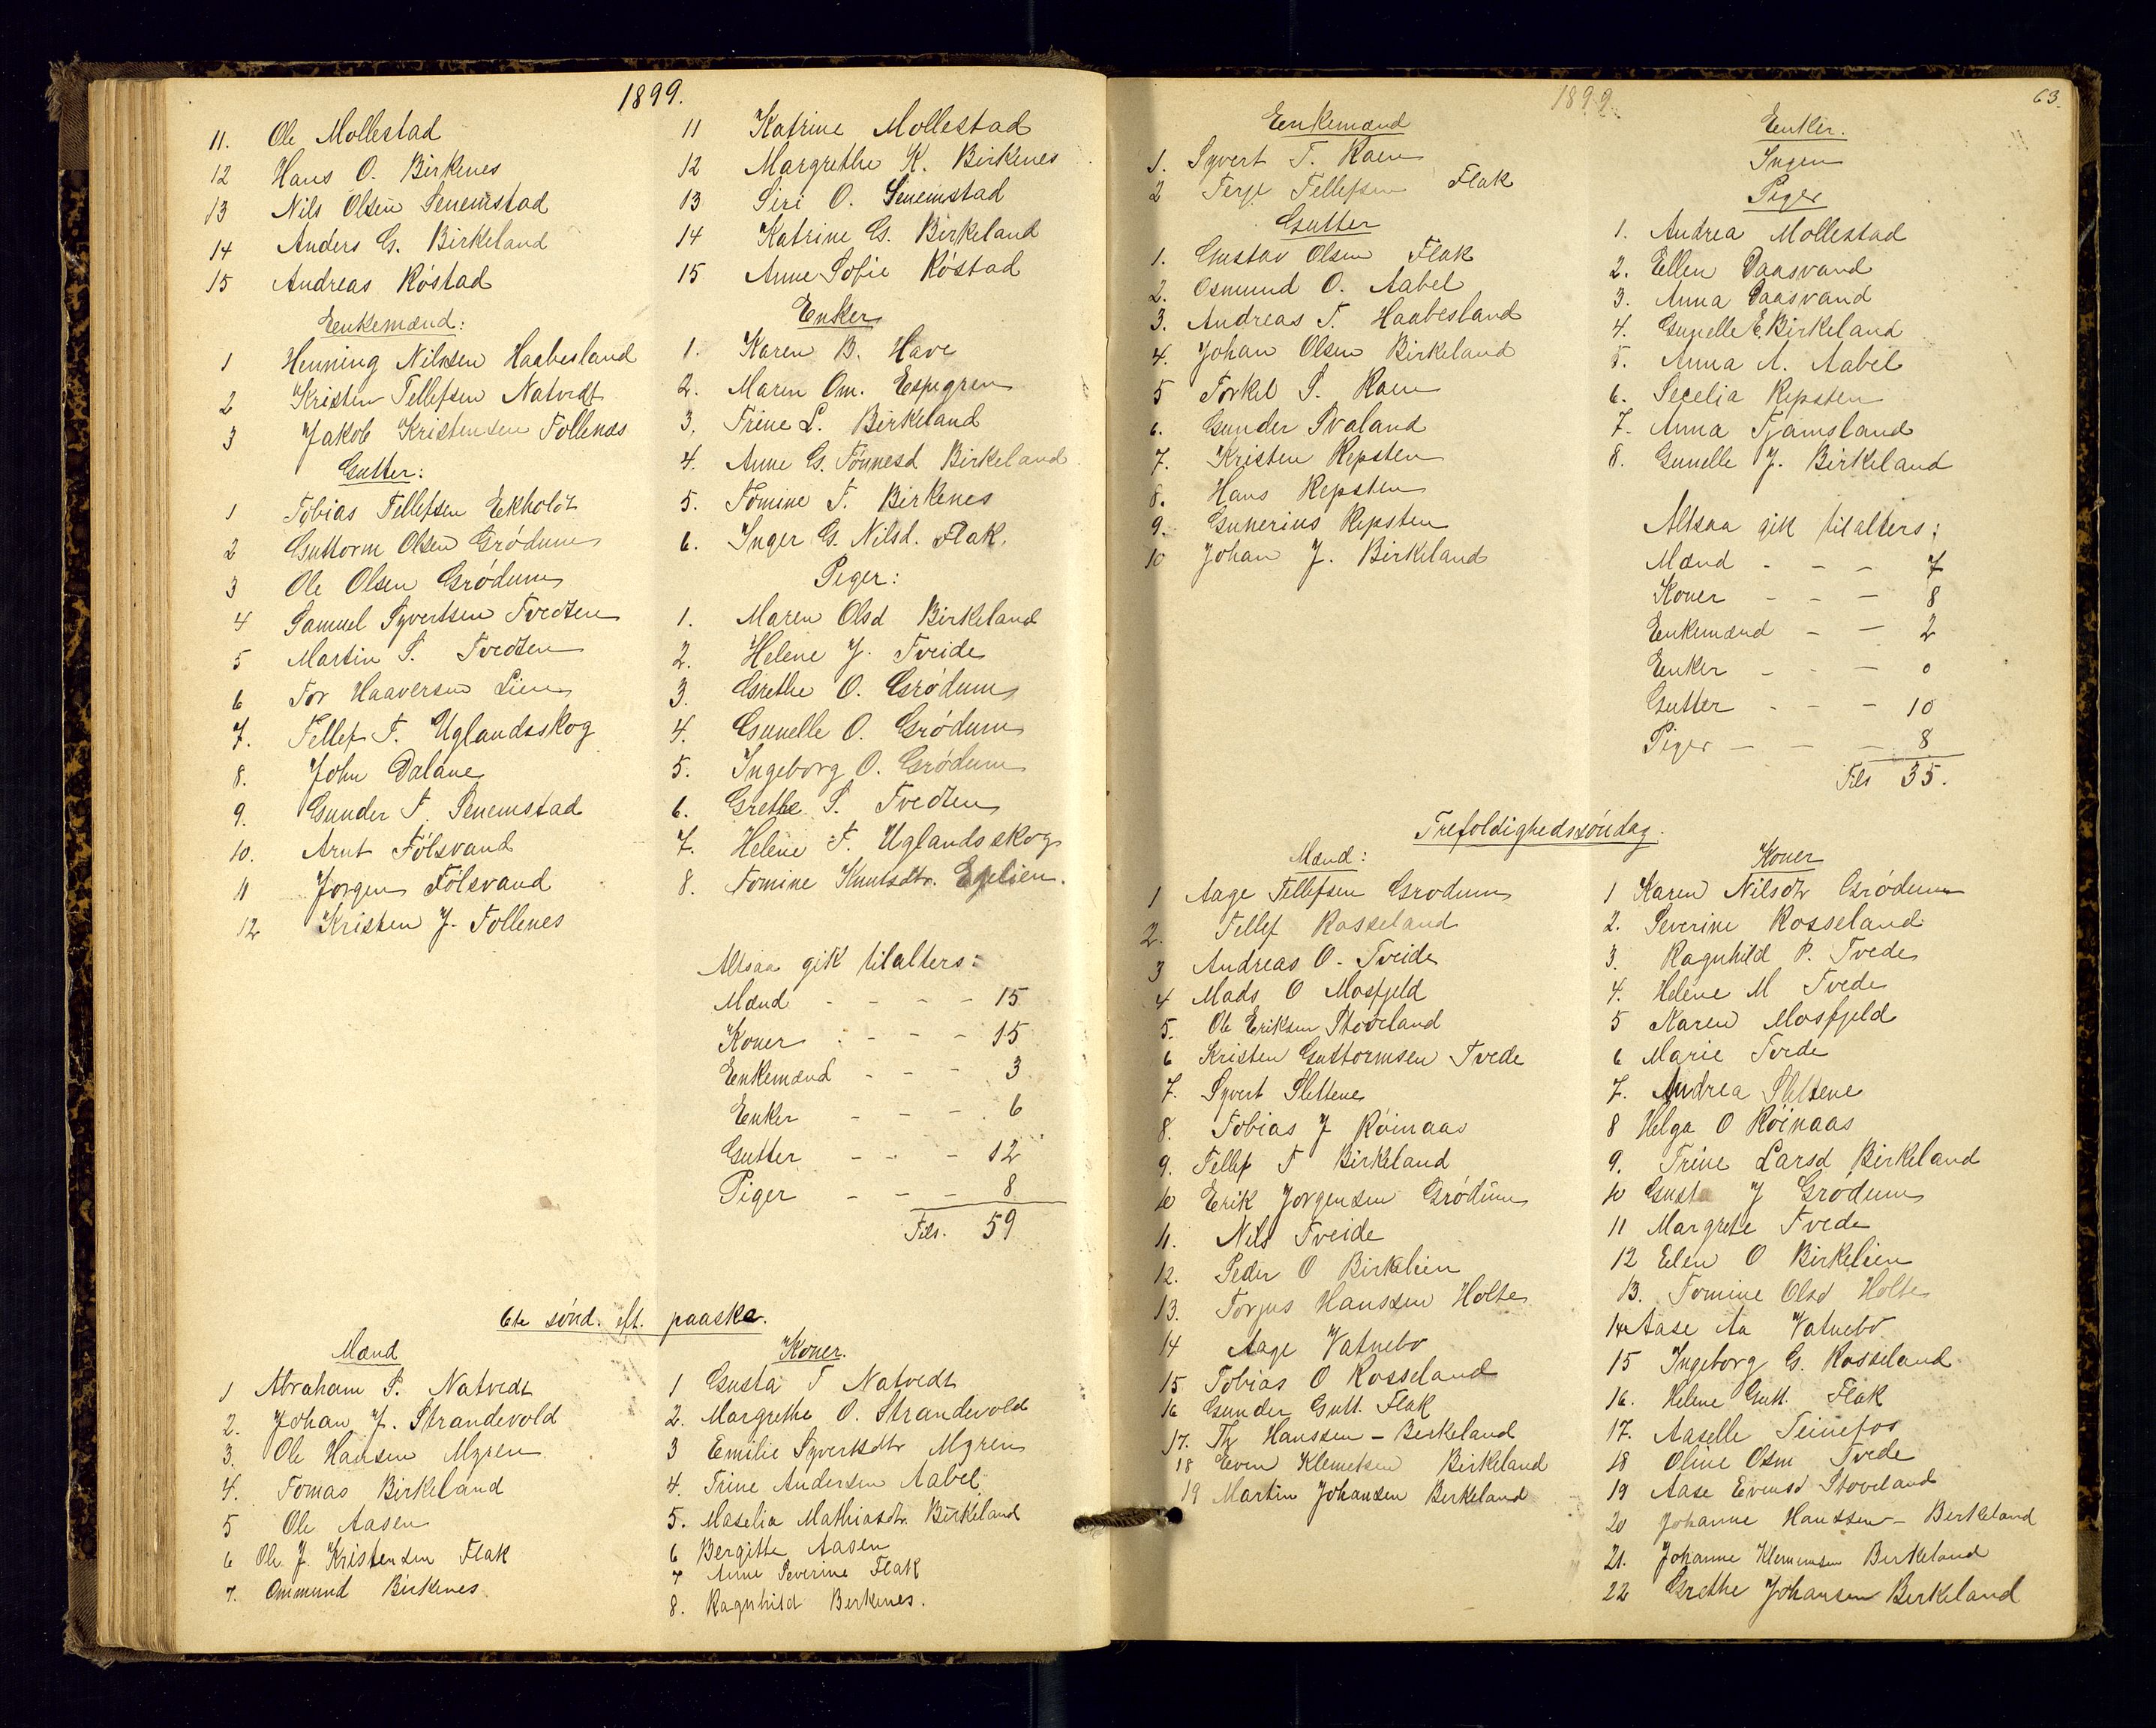 1899.
11. Ole Mollestad
12 Hans O. Birkenes
13 Nils Olsen Senemstad
14 Anders G. Birkeland
15 Andreas Røstad
Enkemænd:
1 Henning Nilsen Haabesland
2 Kristen Tellefsen Natvedt
3 Jakob Kristensen Tollenæs
Gutter:
1 Tobias Tellefsen Ekholdt
2 Guttorm Olsen Grødum
3 Ole Olsen Grødum
4 Samuel Syvertsen Tvedten
5 Martin S. Tvedten
6 Tor Haaversen Lien
7. Tellef T. Uglandsskog
8. John Dalane
9. Gunder T. Senemstad
10. Arnt Følsvand
11 Jørgen Følsvand
12 Kristen J. Tollenes
11 Katrine Mollestad
12 Margrethe K. Birkenes
13 Siri O. Senemstad
14 Katrine G. Birkeland
15 Anne Sofie Røstad
Enker
1. Karen B. Have
2. Maren Om. Espegren
3, Trine L. Birkeland
4. Anne G. Tønnesd Birkeland
5. Tomine T. Birkenes
6. Inger G. Nilsd. Flak.
Piger:
1. Maren Olsd Birkeland
2. Helene J. Tveide
3. Grethe O. Grødum
4. Gunelle O. Grødum
5. Ingeborg O. Grødum
6. Grethe S. Tvedten
7. Helene T. Uglandsskog
8. Tomine Knutsdtr. Egelien.
Altsaa gik tilalters:
Mænd - - - - 15
Koner - - - - 15
Enkemænd - - - 3
Enker - - - . 6
Gutter - - - 12
Piger - - - 8
Tils. 59
6te sønd. eft. paaske.
Mænd
1 Abraham S. Natvedt
2. Johan J. Strandevold
3. Ole Hansen Mgren
4. Tomas Birkeland
5 Ole Aasen
6 Ole J. Kristensen Flak
7. Ommund Birkenes
Koner.
1 Gusta T Natvedt
2. Margrethe O. Strandevold
3 Emilie Syvertsdtr Mgren
4. Trine Andersen Aabel
5. Maselia Mathiasdtr. Birkeland
6 Bergitte Aasen
7 Anne Severine Flak
8. Ragnhild Berkenes.
1899.
63.
Enkemænd
1. Syvert T. Raen
2 Terje Tellefsen Flak
Gutter
1. Gustav Olsen Flak
2. Osmund O. Aabel
3. Andreas T. Haabesland
4. Johan Olsen Birkeland
5 Torkel S. Raen
6. Gunder Svaland
7. Kristen Repsten
8. Hans Repsten
9. Gunerius Repsten
10 Johan J. Birkeland
Enker.
Ingen
Piger
1. Andrea Mollestad
2. Ellen Daasvand
3. Anna Daasvand
4. Gunelle E. Birkeland
5. Anna A. Aabel
6. Secelia Repsten
7. Anna Tjamsland
8. Gunelle J. Birkeland
Altsaa gik tilalters:
Mænd - - - 7
Koner - - - 8
Enkemænd - - 2
Enker - - - 0
Gutter - - - 10
Piger - - - 8
Tils 35.
Trefoldighedssøndag.
Mænd:
1 Aage Tellefsen Grødum
2. Tellef Rosseland
3 Andreas O. Tveide
4 Mads O Mosfjeld
5. Ole Eriksen Stoveland
6 Kristen Guttormsen Tvede
7. Syvert Slettene
8. Tobias J Røinaas
9. Tellef T Birkeland
10 Erik Jørgensen Grødum
11. Nils Tveide
12. Peder O Birkelien
13. Torjus Hanssen Holte
14 Aage Vatnebo
15 Tobias O Rosseland
16 Gunder Gutt. Flak
17. Th Hanssen - Berkeland
18 Even Klemetsen Birkeland
19 Martin Johansen Berkeland
Koner
1 Karen Nilsdtr Grødum
2. Severine Rosseland
3. Ragnhild P. Tvede
4. Helene M Tvede
5 Karen Mosfjeld
6 Marie Tvede
7. Andrea Slettene
8 Helga O Røinaas
9. Trine Larsd Birkeland
10 Gusta J Grødum
11 Margrete Tvede
12 Elen O Birkelien
13. Tomine Olsd Holte
14 Aase Aa Vatnebo
15 Ingeborg G. Rosseland
16. Helene Gutt. Flak
17. Aaselle Teinefos
18 Oline Osm Tvede
19 Aase Evensd Stoveland
20 Johanne Hanssen - Berkeland
21. Johanne Klemmsen Berkeland
22 Grethe Johansen Berkeland